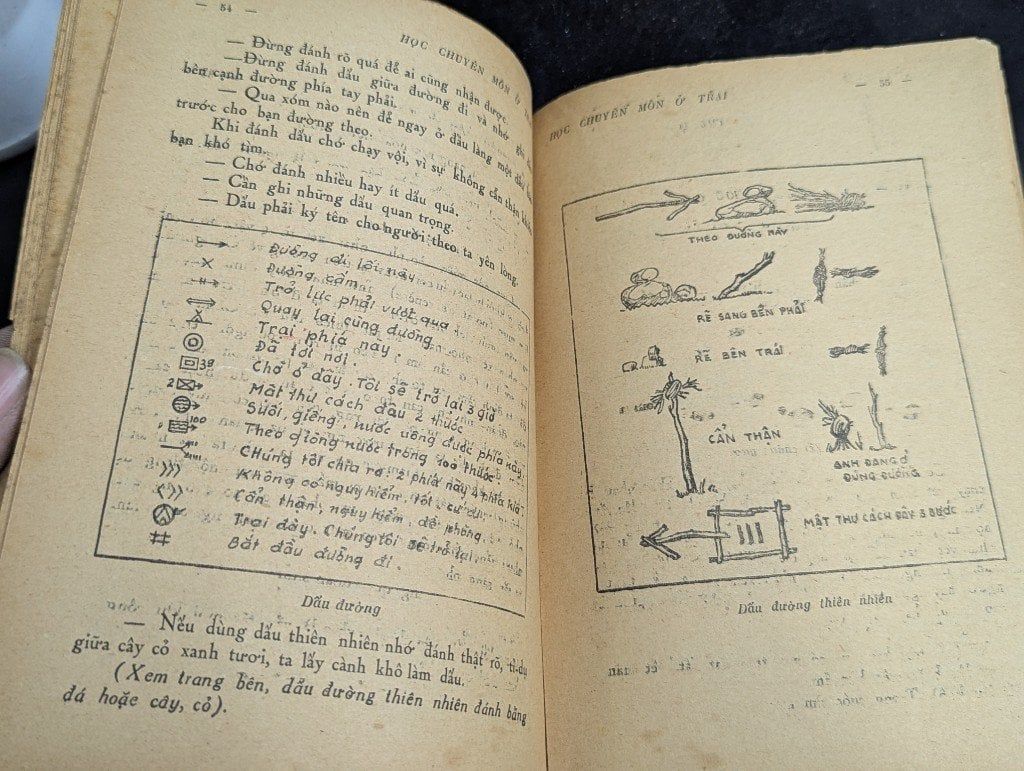 — 54 —
HỌC CHUYÊN MÔN Ở
— Đừng đánh rõ quá để ai cũng nhận được.
— Đừng đánh dấu giữa đường đi và nhớ
bên cạnh đường phía tay phải.
— Qua xóm nào nên để ngay ở đầu làng một dấu
trước cho bạn đường theo.
Khi đánh dấu chớ chạy vội, vì sự không cẩn thận
bạn khó tìm.
— Chớ đánh nhiều hay ít dấu quá.
— Cần ghi những dấu quan trọng.
— Dấu phải ký tên cho người theo ta yên lòng.
Đường đi lối này
Đường cấm
Trở lực phải vượt qua
Quay lại cùng đường
Trại phía này
Đã tới nơi
3g Chờ ở đây. Tôi sẽ trở lại 3 giờ
2 Mật thư cách đâu 2 thước
Suối, giếng, nước uống được phía này
100 Theo giòng nước trong 100 thước
Chúng tôi chia ra 2 phía này 4 phía kia
Không có nguy hiểm, tốt cứ đi
Cẩn thận, nguy hiểm, đề phòng
Trại đây. Chúng tôi sẽ trở lại
Bắt đầu đường đi.
Dấu đường
— Nếu dùng dấu thiên nhiên nhớ đánh thật rõ, tỉ-dụ
giữa cây cỏ xanh tươi, ta lấy cành khô làm dấu.
(Xem trang bên, dấu đường thiên nhiên đánh bằng
đá hoặc cây, cỏ).
HỌC CHUYÊN MÔN Ở TRẠI
— 55 —
THEO ĐƯỜNG NÀY
RẼ SANG BÊN PHẢI
RẼ BÊN TRÁI
CẨN THẬN
ANH ĐANG Ở
ĐÚNG ĐƯỜNG
MẬT THƯ CÁCH ĐÂY 3 BƯỚC
Dấu đường thiên nhiên